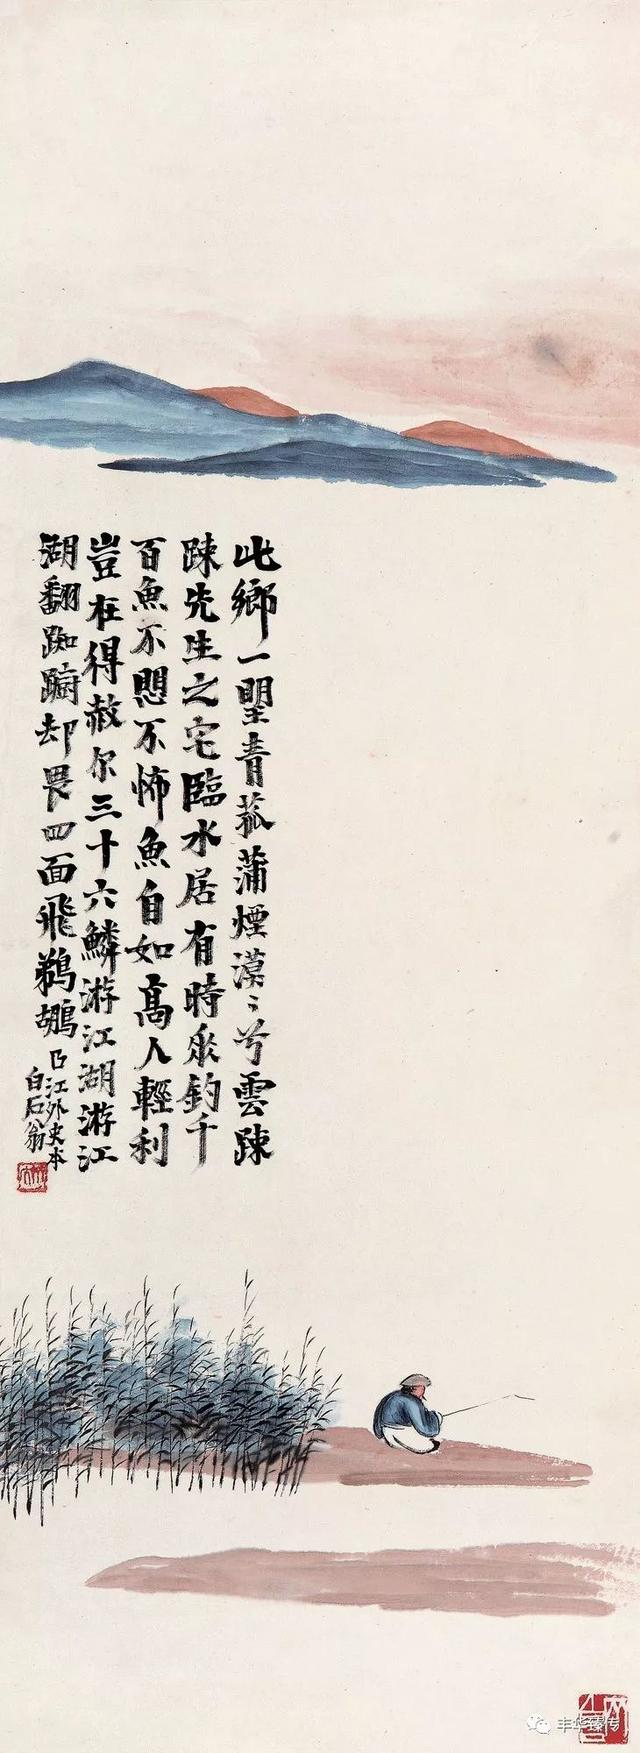 此鄉一望青菰蒲煙漠〻兮雲疎
疎先生之宅臨水居有時垂釣千
百魚不悶不怖魚自如高人輕利
豈在得赦尔三十六鱗游江湖游江
湖翻踟躕却畏四面飛鵜鶘
曲江外史本
白石翁
丰华臻传